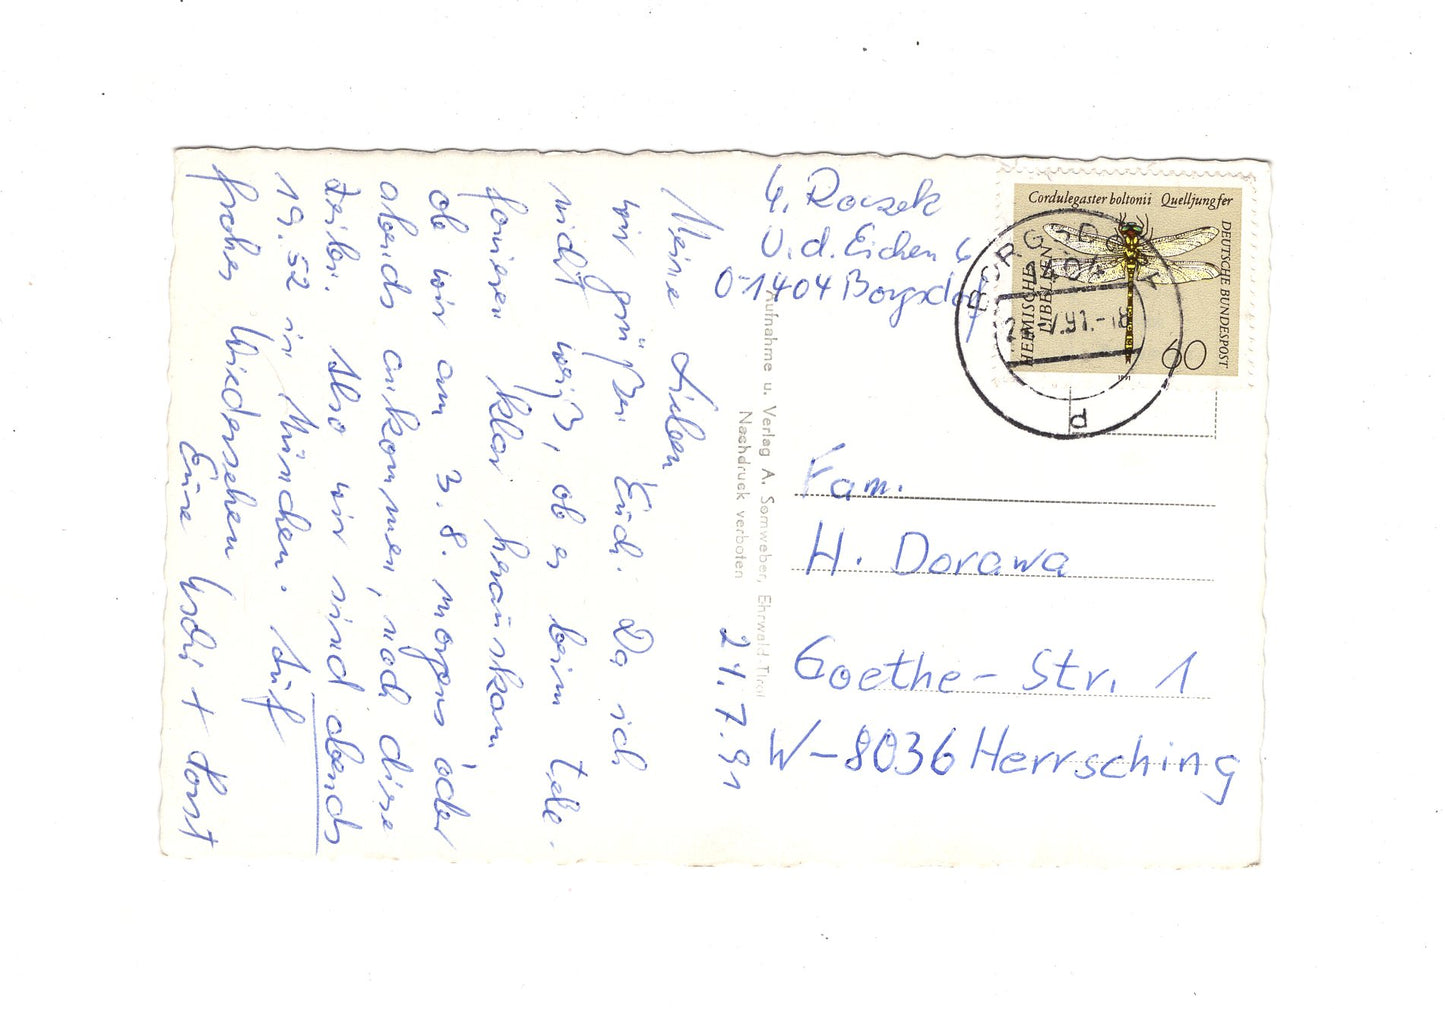 Meine Lieben
wir grüßen Euch. Da ich
nicht weiß, ob es beim tele-
fonieren klar herauskam
ob wir am 3.8. morgens oder
abends ankommen, noch diese
Zeilen. Also wir sind abends
19.52 in München. Auf
frohes Wiedersehen
Eure Uschi + Horst
24.7.91
Aufnahme u. Verlag A. Somweber, Ehrwald-Tirol
Nachdruck verboten
U. d. Eichen 6
O-1404 Borgsdorf
Cordulegaster boltonii Quelljungfer
HEIMISCHE
LIBELLEN
DEUTSCHE BUNDESPOST
60
1991
BORGSDORF
1404
7.91.-18
d
Fam.
H. Dorawa
Goethe-Str. 1
W-8036 Herrsching